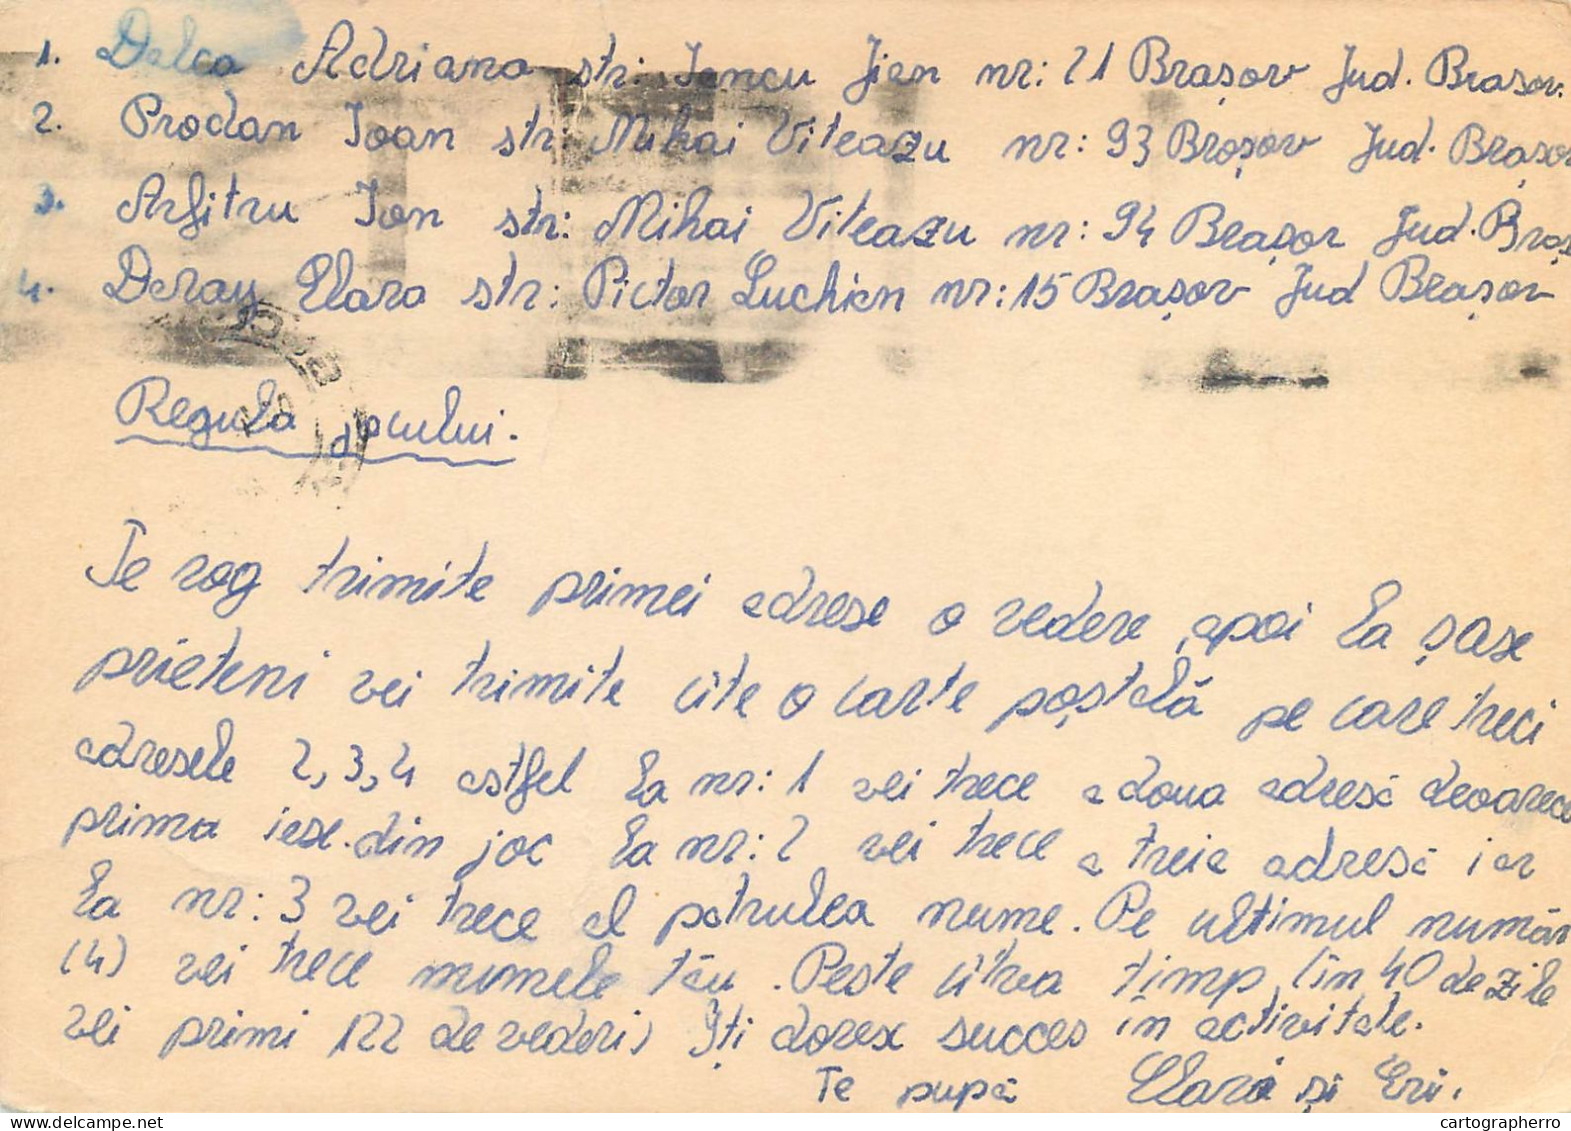 1. Delca Adriana str: Iancu Jian nr: 21 Brașov Jud. Brasov.
2. Prodan Ioan str: Mihai Viteazu nr: 93 Brașov Jud. Brașov
3. Ion str: Mihai Viteazu nr: 94 Brașov Jud. Braș
4. Clara str: Pictor Luchian nr: 15 Brașov Jud Brașov
Regula jocului.
Te rog trimite primei adrese o vedere, apoi la șase
prieteni vei trimite cîte o carte poștală pe care treci
adresele 2, 3, 4 astfel la nr: 1 vei trece a doua adresă deoarece
prima iese din joc la nr: 2 vei trece a treia adresă iar
la nr: 3 vei trece al patrulea nume. Pe ultimul număr
(4) vei trece numele tău. Peste cîtva timp (în 40 de zile
vei primi 122 de vederi) Îți dorex succes în activitate.
Te pupă Clara și Eri.
cartographerro